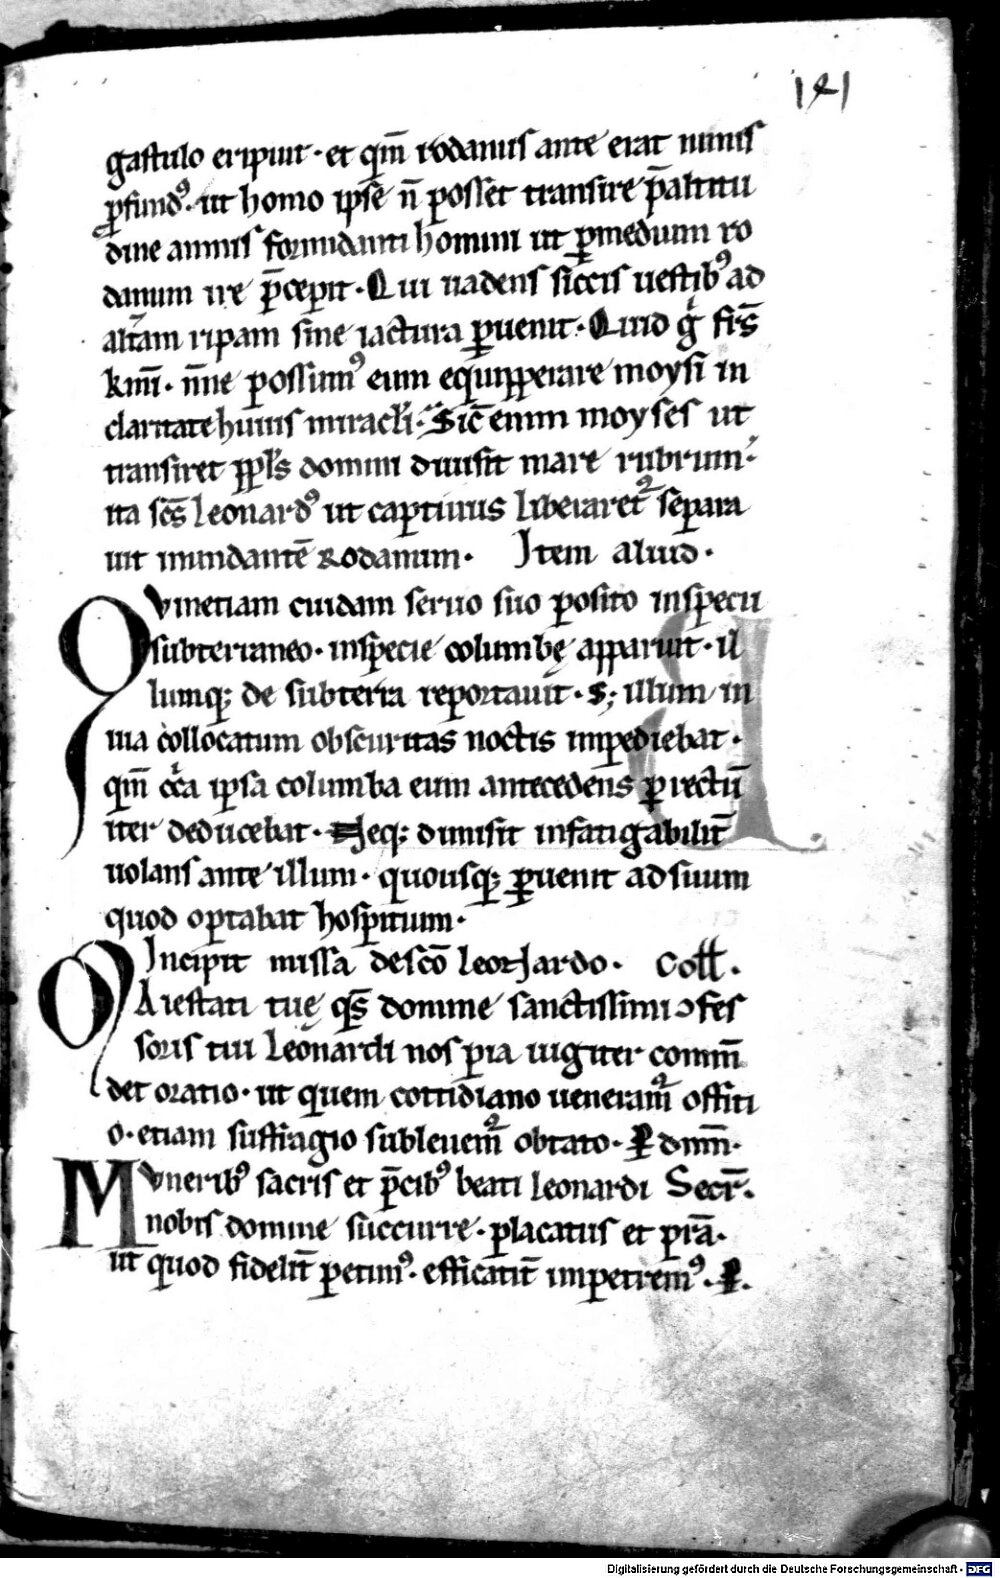 141
gastulo eripiut · et qm̄ rodanus ante erat nimis
ꝓfundꝰ · ut homo ipse n̄ posset transire p̄ altitu
dine amnis formidanti homini ut ꝑ medium ro
danum ire p̄cepit · Qui uadens siccis uestibꝰ ad
alt̄am ripam sine iactura ꝑuenit · Quid gͥ fr̄s
km̄i · nn̄e possimꝰ eum equipperare moysi in
claritate huius miracl̄i · Sic̄ enim moyses ut
transiret ppl̄s domini diuisit mare rubrum ·
ita sc̄s Leonardꝰ ut captiuus liberaret᷑ separa
uit inundantē Rodanum · Item aliud ·
Qvinetiam cuidam seruo suo posito in specu
subterraneo · in specie columbę apparuit · il
lumqꝫ de subterra reportauit · sꝫ illum in
uia collocatum obscuritas noctis impediebat ·
qm̄ cc̄a ipsa columba eum antecedens ꝑ rectū
iter deducebat · Neqꝫ dimisit infatigabilit̄
uolans ante illum · quousqꝫ ꝑuenit ad suum
quod optabat hospitium ·
Incipit missa de sc̄o leonhardo · Coll̄ ·
MAiestati tuę qs̄ domine sanctissimi ꝯfes
soris tui Leonardi nos pia iugiter com̄m
det oratio · ut quem cottidiano ueneram᷑ offiti
o · etiam suffragio subleuem᷑ obtato · P̄ dnm̄ ·
Mvneribꝰ sacris et p̄cibꝰ beati leonardi Secr̄ ·
nobis domine succurre · placatus et prā ·
ut quod fidelit̄ petimꝰ · efficatit̄ impetremꝰ · P̄ ·
Digitalisierung gefördert durch die Deutsche Forschungsgemeinschaft - DFG